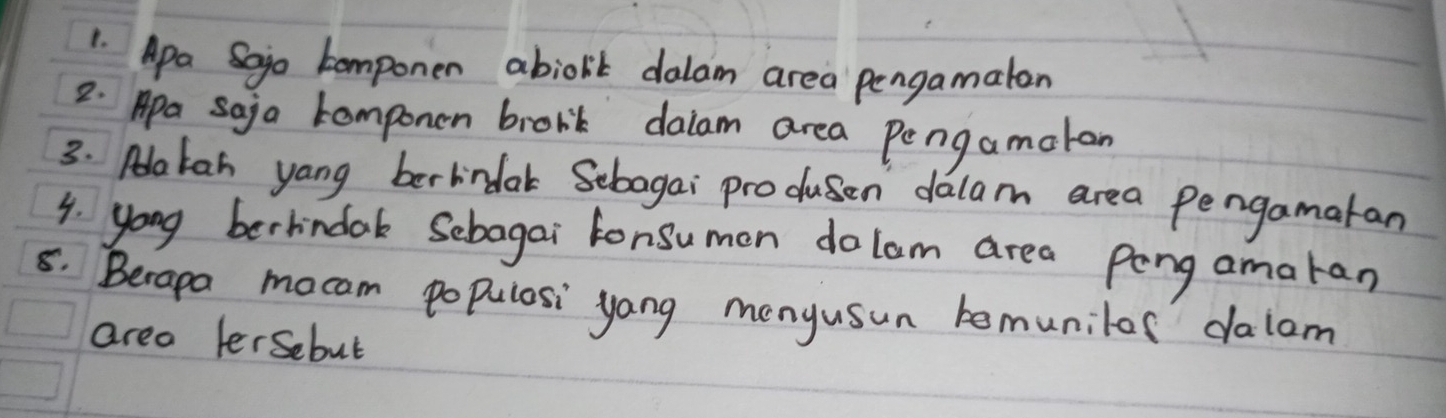 1. Apa saja komponen abiotik dalam area pengamatan
2. Apa saja komponen biotik dalam area pengamatan
3. Adakah yang bertindak sebagai produsen dalam area pengamatan
4. yang bertindak sebagai konsumen dalam area pengamatan
5. Berapa macam populasi yang menyusun komunitas dalam
area tersebut